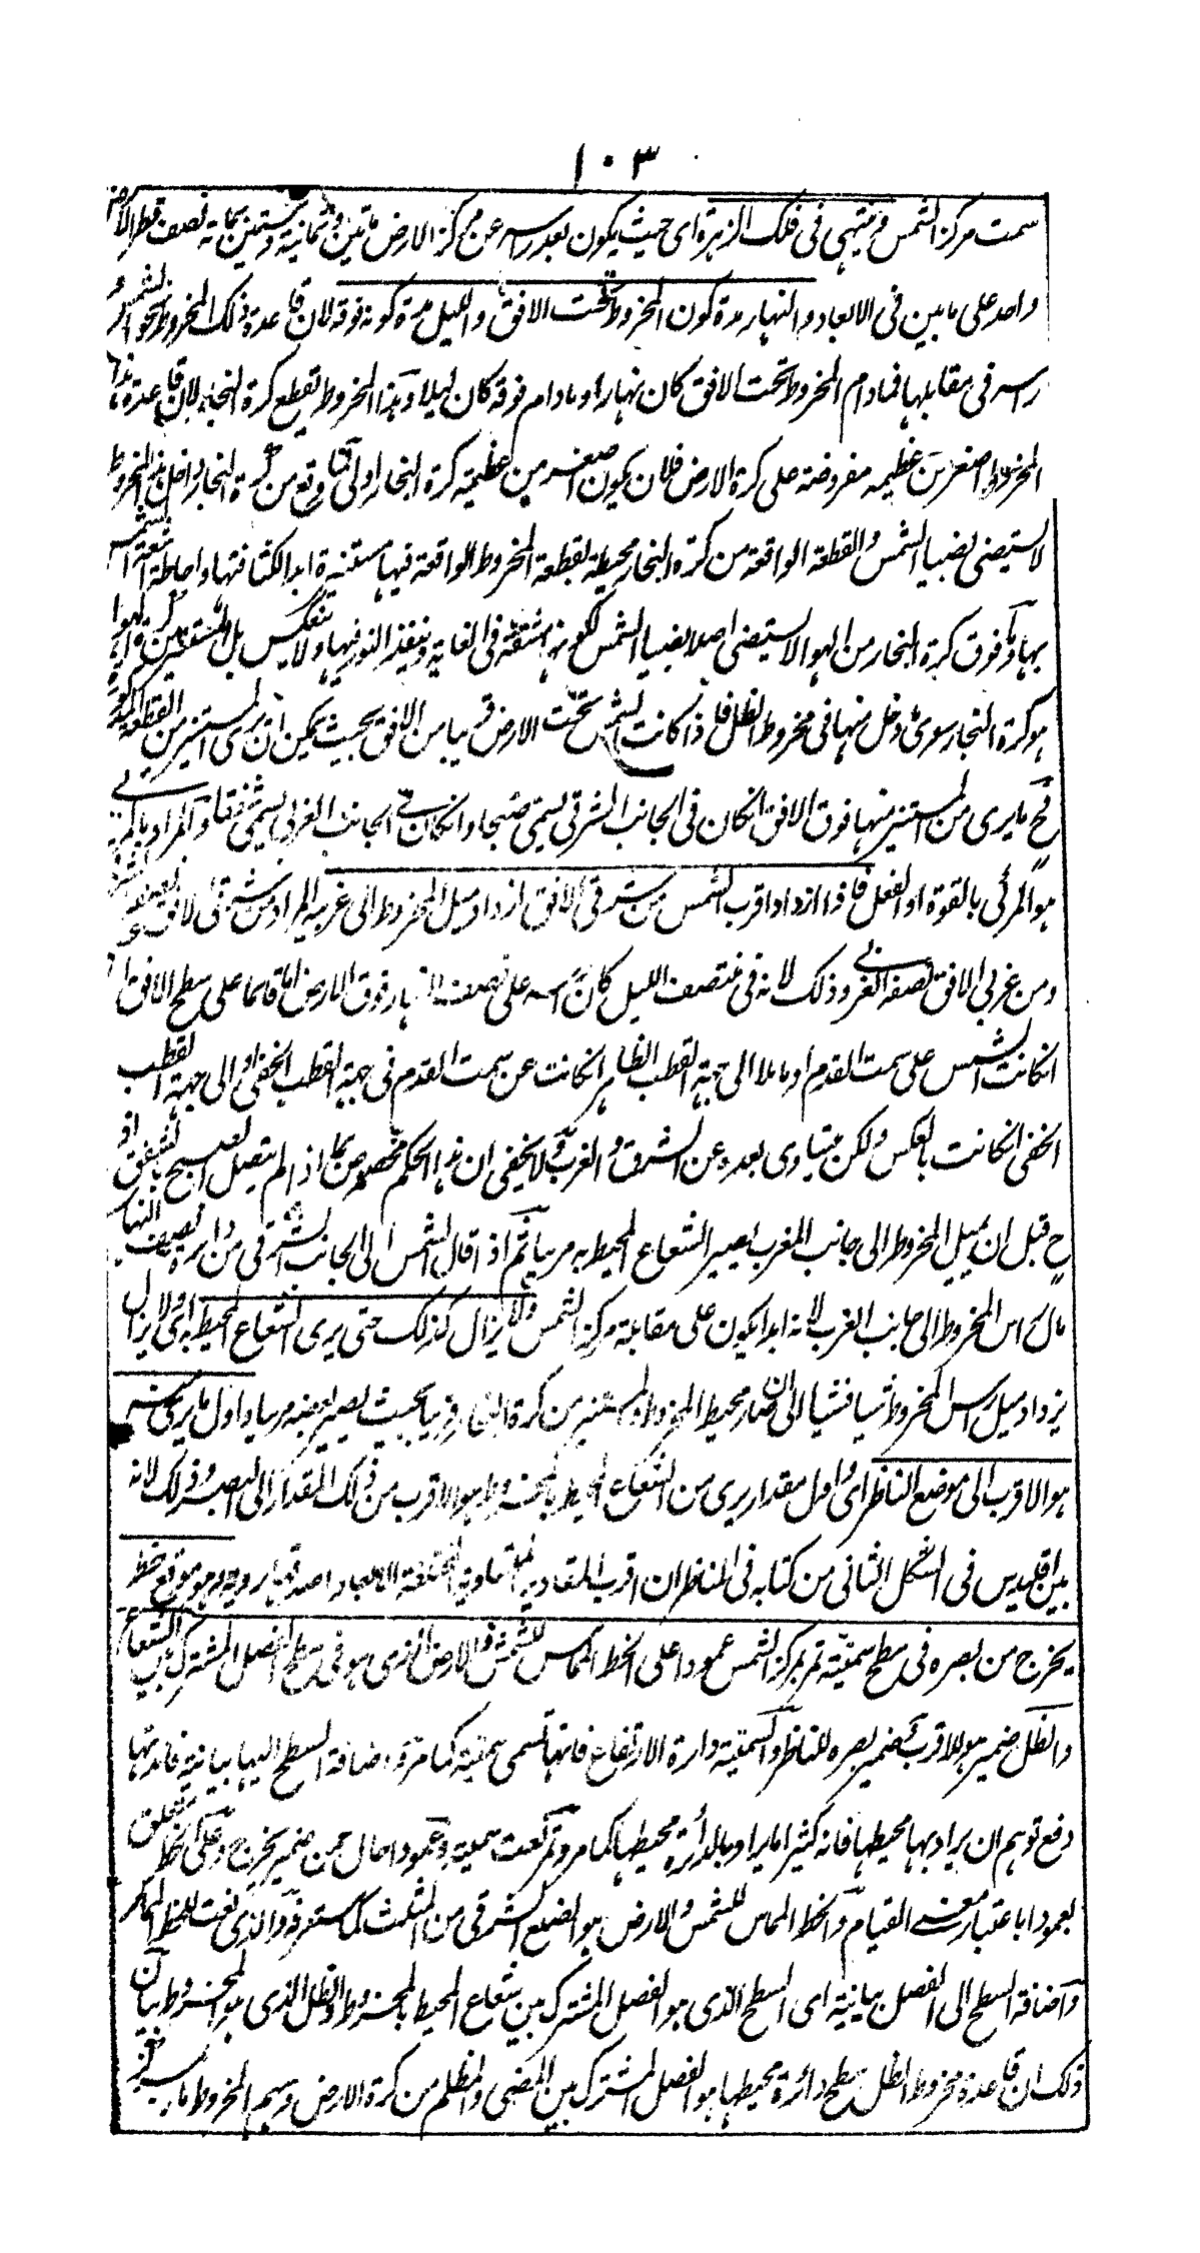 ١٠٣
سمت مركز الشمس وينتهى فى فلك الزهرة اى حيث يكون بعد راسه عن مركز الارض مأتين وثمانية وستين بما به نصف قطر الارض
واحد على ما بين فى الابعاد والنهار مدة كون المخروط تحت الافق والليل مدة كونه فوقه لان قاعدة ذلك المخروط نحو الشمس و
راسه فى مقابلها فمادام المخروط تحت الافق كان نهارا ومادام فوقه كان ليلا وهذا المخروط يقطع كرة البخار لان قاعدة هذا
المخروط اصغر من عظيمه مفروضة على كرة الارض فلان يكون اصغر من عظيمة كرة البخار اولى فما وقع من كرة البخار داخل هذا المخروط
لا يستضئ بضياء الشمس والقطعة الواقعة من كرة البخار محيطة بقطعة المخروط الواقعة فيها مستنيرة ابدا لكثافتها واحاطة اشعة الشمس
بها وما فوق كرة البخار من الهواء لا يستضئ اصلا بضياء الشمس لكونه مشفة فى الغاية وينفذ النور فيها ولا ينعكس بل المستنير من كرة الهواء
هو كرة البخار سوى ما دخل منها فى مخروط الظل فاذا كانت الشمس تحت الارض قريبا من الافق بحيث يمكن ان يرى المستنير من القطعة المذكورة
فح ما يرى من المستنير منها فوق الافق انكان فى الجانب الشرقى يسمى صبحا وانكان فى الجانب الغربى يسمى شفقا والمراد بالمرئى
هو المرئى بالقوة او الفعل فاذا ازداد اقرب الشمس من شرقى الافق ازداد ميل المخروط الى غربيه المراد من شرقى الافق نصفه الشرقى
ومن غربى الافق نصفه الغربى وذلك لانه فى منتصف الليل كان راسه على نصف النهار فوق الارض اما قائما على سطح الافق
انكانت الشمس على سمت القدم او مائلا الى جهة القطب الظاهر انكانت عن سمت القدم فى جهة القطب الخفى او الى جهة القطب
الخفى انكانت بالعكس ولكن متساوى بعده عن الشرق والغرب ولا يخفى ان هذا الحكم مخصوص بما اذا لم يتصل الصبح بالشفق اذ
ح قبل ان يميل المخروط الى جانب المغرب يصير الشعاع المحيط به مرئيا ثم اذا قال الشمس الى الجانب الشرقى من دائرة نصف النهار
مال راس المخروط الى جانب الغرب لانه ابدا يكون على مقابلة مركز الشمس ولا يزال كذلك حتى يرى الشعاع المحيط به اى ولا يزال
يزداد ميل راس المخروط شيئا فشيئا الى ان محيط المخروط المستنير من كرة البخار قريبا بحيث يصير بعضه مرئيا واول ما يرى منه
هو الاقرب الى موضع الناظر اى اول مقدار يرى من الشعاع المحيط بالمخروط هو الاقرب من ذلك المقدار الى البصر وذلك لانه
بين اقليدس فى الشكل الثانى من كتابه فى المناظر ان اقرب المقادير المتساوية المختلفة الابعاد اصدقها رؤية وهو موقع خط
يخرج من بصره فى سطح سمتية تمر بمركز الشمس عمودا على الخط المماس للشمس والارض الذى هو فى سطح الفصل المشترك بين الشعاع
والظل ضمير هو للاقرب وضمير بصره للناظر والسمتية دائرة الارتفاع فانها تسمى سمتية كما مر واضافة السطح اليها بيانية فائدتها
دفع توهم ان يراد بها محيطها فانه كثيرا ما يراد بالدائرة محيطها كما مر وتمر نعت سمتية وعمودا حال من ضمير يخرج وعلى الخط متعلق
بعمودا باعتبار معنى القيام والخط المماس للشمس والارض هو الضلع الشرقى من المثلث كما ستعرفه والذى نعت للخط المماس
واضافة السطح الى الفصل بيانية اى السطح الذى هو الفصل المشترك بين شعاع المحيط بالمخروط والظل الذى هو المخروط بيان
ذلك ان قاعدة مخروط الظل سطح دائرة محيطها هو الفصل المشترك بين المضئ والمظلم من كرة الارض وسهم المخروط ما بمركز